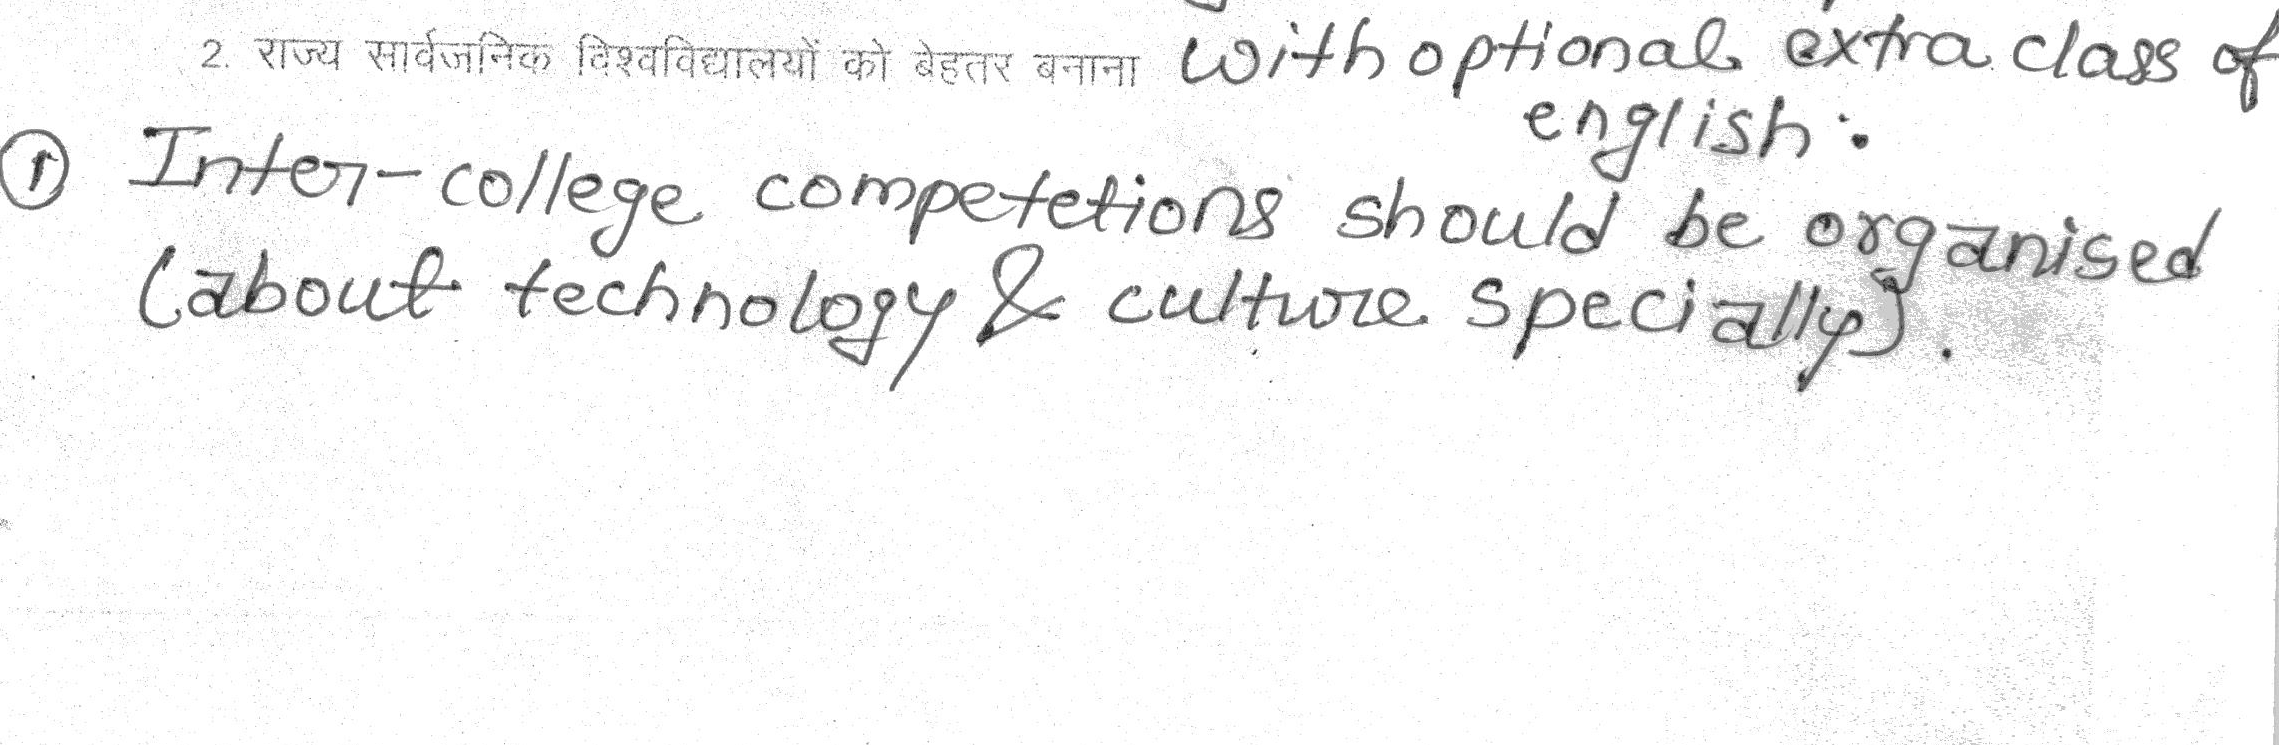 2. राज्य सार्वजनिक विश्वविद्यालयों को बेहतर बनाना with optional extra class of
english.
① Inter-college competetions should be organised
(about technology & culture specially).